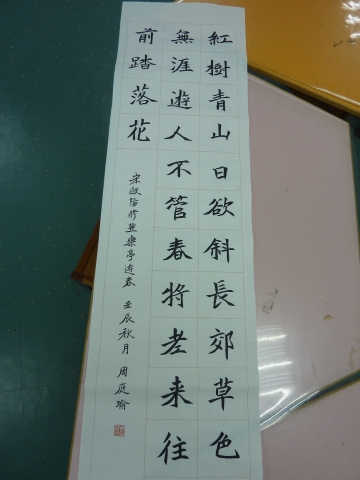 紅樹青山日欲斜長郊草色
無涯遊人不管春將老来往
前踏落花
宋歐陽修豐樂亭遊春 壬辰秋月 周庭瑜